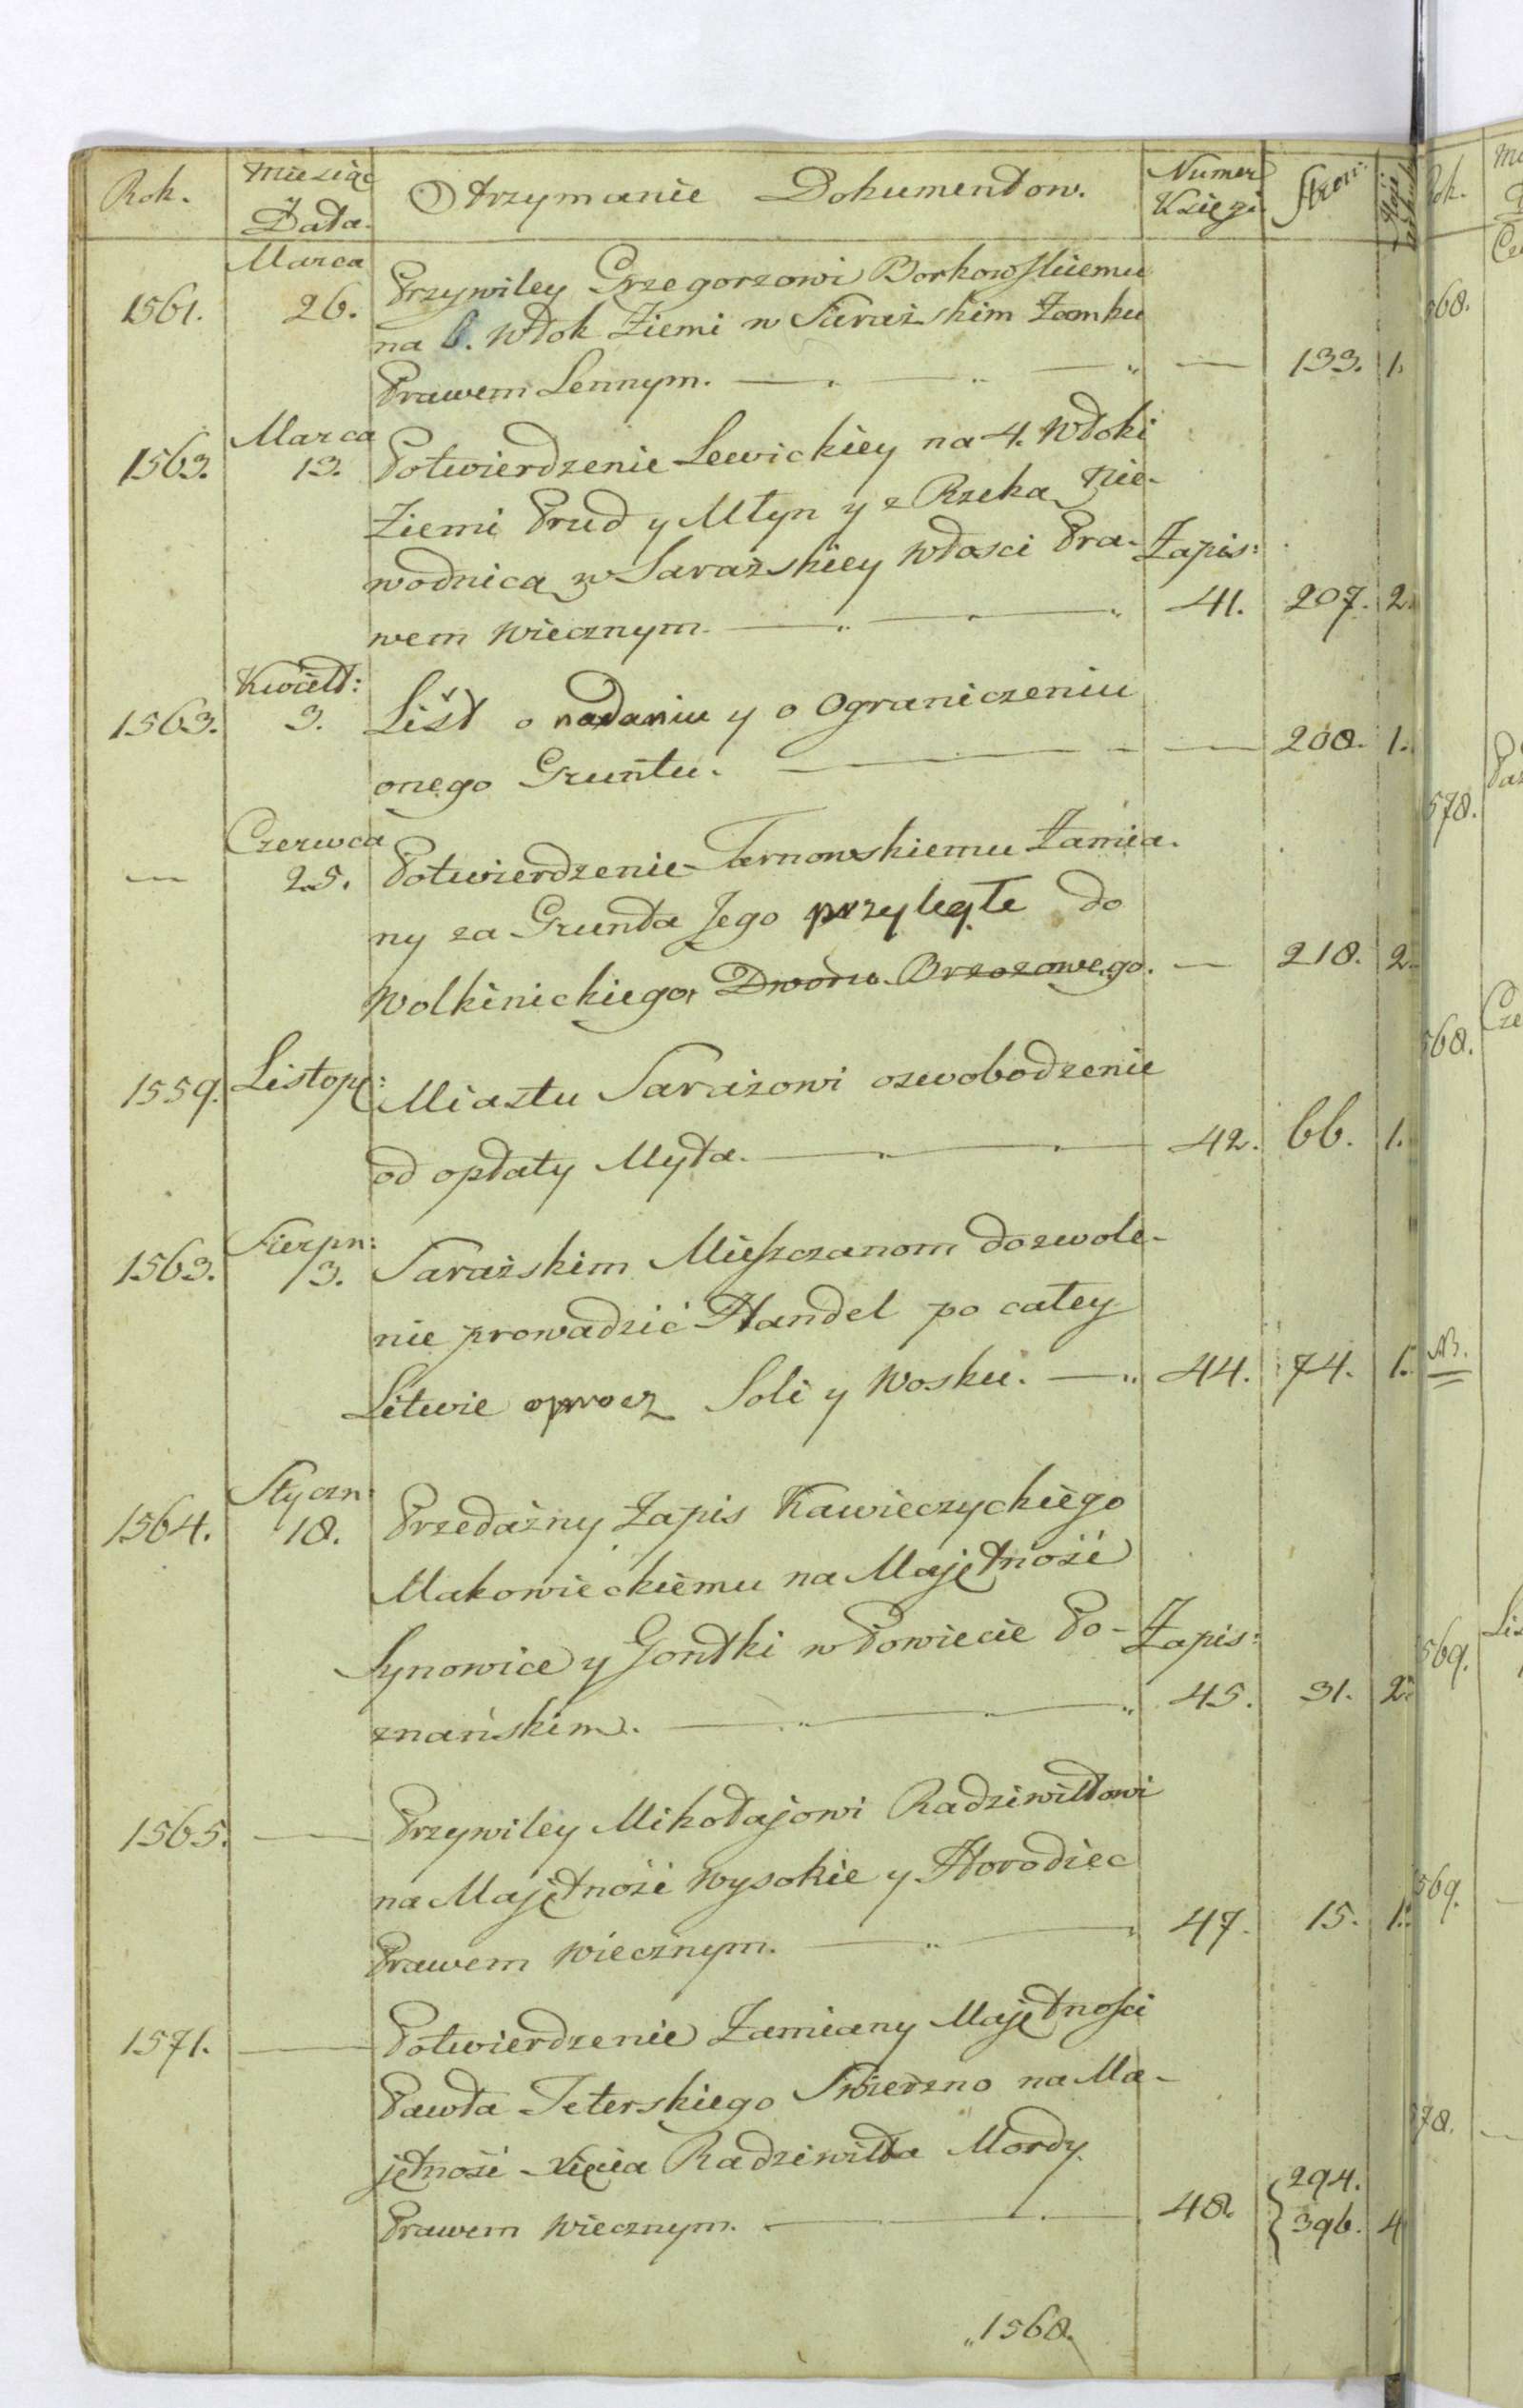 Rok. Miesiąc Data. Otrzymanie Dokumentow. Numer Księgi
1561. Marca 26. Przywiley Grzegorzowi Borkowskiemu
na 6. Włok Ziemi w Surażskim Zamku
Prawem Lennym. — 133. 1.
1563. Marca 13. Potwierdzenie Lewickiey na 4. Włoki
Ziemi Prud y Młyn y z Rzeką Nie-
wodnicą w Surażskiey Włosci Pra- Zapis:
wem Wiecznym. 41. 207. 2.
1563. Kwiet: 3. List o nadaniu y o Ograniczeniu
onego Gruntu. — 208. 1.
— Czerwca 25. Potwierdzenie Tarnowskiemu Zamia-
ny za Grunta Jego przyległe do
Wolkinickiego Dworu Brzozowego. — 218. 2.
1559. Listop: Miastu Sarażowi oswobodzenie
od opłaty Myta. 42. 66. 1.
1563. Sierpn: 13. Sarażskim Mieszczanom dozwole-
nie prowadzić Handel po całey
Litwie oprocz Soli y Wosku. 44. 74. 1.
1564. Styczn: 18. Przedażny Zapis Kawieczyckiego
Makowieckiemu na Majętność
Synowice y Gontki w Powiecie Po- Zapis:
znańskim. 45. 31. 2.
1565. — Przywiley Mikołajowi Radziwiłłowi
na Majętność Wysokie y Horodiec
Prawem Wiecznym. 47. 15. 1.
1571. — Potwierdzenie Zamiany Majętnosci
Pawła Teterskiego Swierzno na Ma-
jętność Xięcia Radziwiłła Mordy
Prawem Wiecznym. 48. 294. 396. 4
1568.